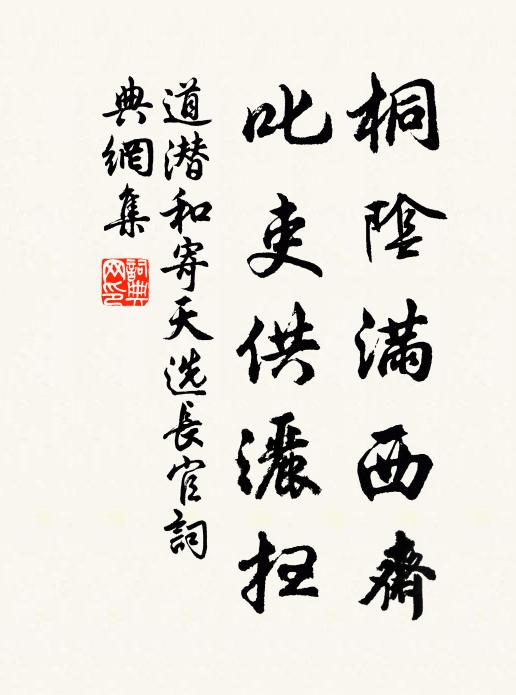 桐陰滿西齋
叱吏供灑掃
道潜和寄天选長官詞
典網集
詞典网印